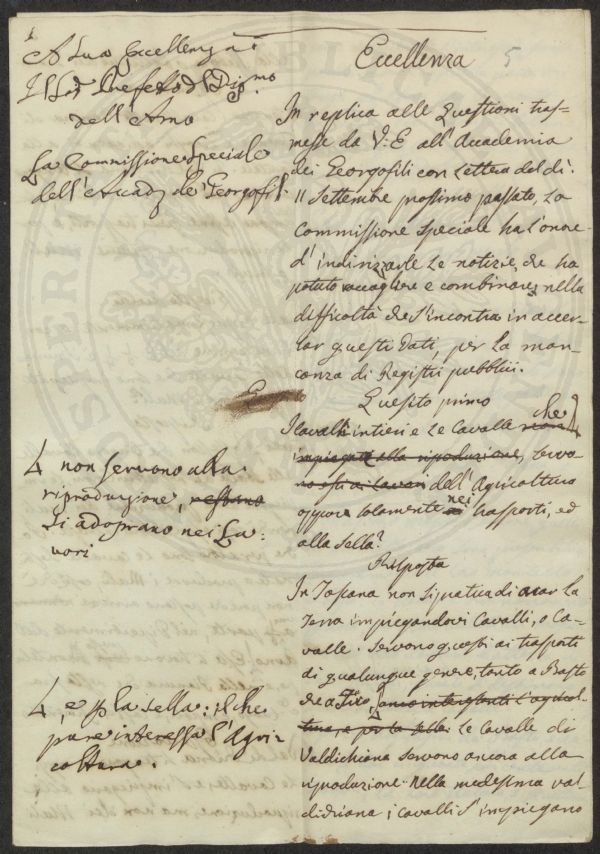 A Sua Eccellenza
Il Sig. Prefetto del Dip.mo
dell'Arno
La Commissione Speciale
dell'Accad. de' Georgofili
Eccellenza
5
In replica alle Questioni tras-
messe da V. E. all'Accademia
dei Georgofili con Lettera del dì
11 Settembre prossimo passato, La
Commissione Speciale ha l'onore
d'indirizzarle Le notizie, che ha
potuto raccogliere e combinare, nella
difficoltà che s'incontra in accer-
tar questi Dati, per La man-
canza di Registri pubblici.
Quesito primo
I Cavalli intieri e Le Cavalle che non
impiegate alla riproduzione, servo-
no essi ai Lavori dell'Agricoltura
oppure solamente nei trasporti, ed
alla Sella?
non servono alla
riproduzione, restano
si adoprano nei La-
vori
Risposta
In Toscana non si pratica di arar La
Terra impiegandovi Cavalli, o Ca-
valle. Servono questi ai trasporti
di qualunque genere, tanto a Basto
che a Tiro, anco interessanti l'agricol-
tura, e per la Sella. Le Cavalle di
Valdichiana servono ancora alla
riproduzione. Nella medesima Val
di Chiana i Cavalli s'impiegano
e p. la sella: il che
pure interessa l'Agri-
coltura.